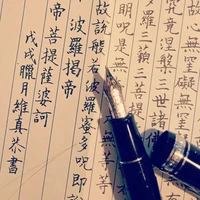 心無罣礙無
究竟涅槃三世諸
多羅三藐三菩提
明呪是無 無等
故說般若波羅蜜多呪即
波羅揭帝
帝菩提薩婆訶
戊戌臘月維真恭書